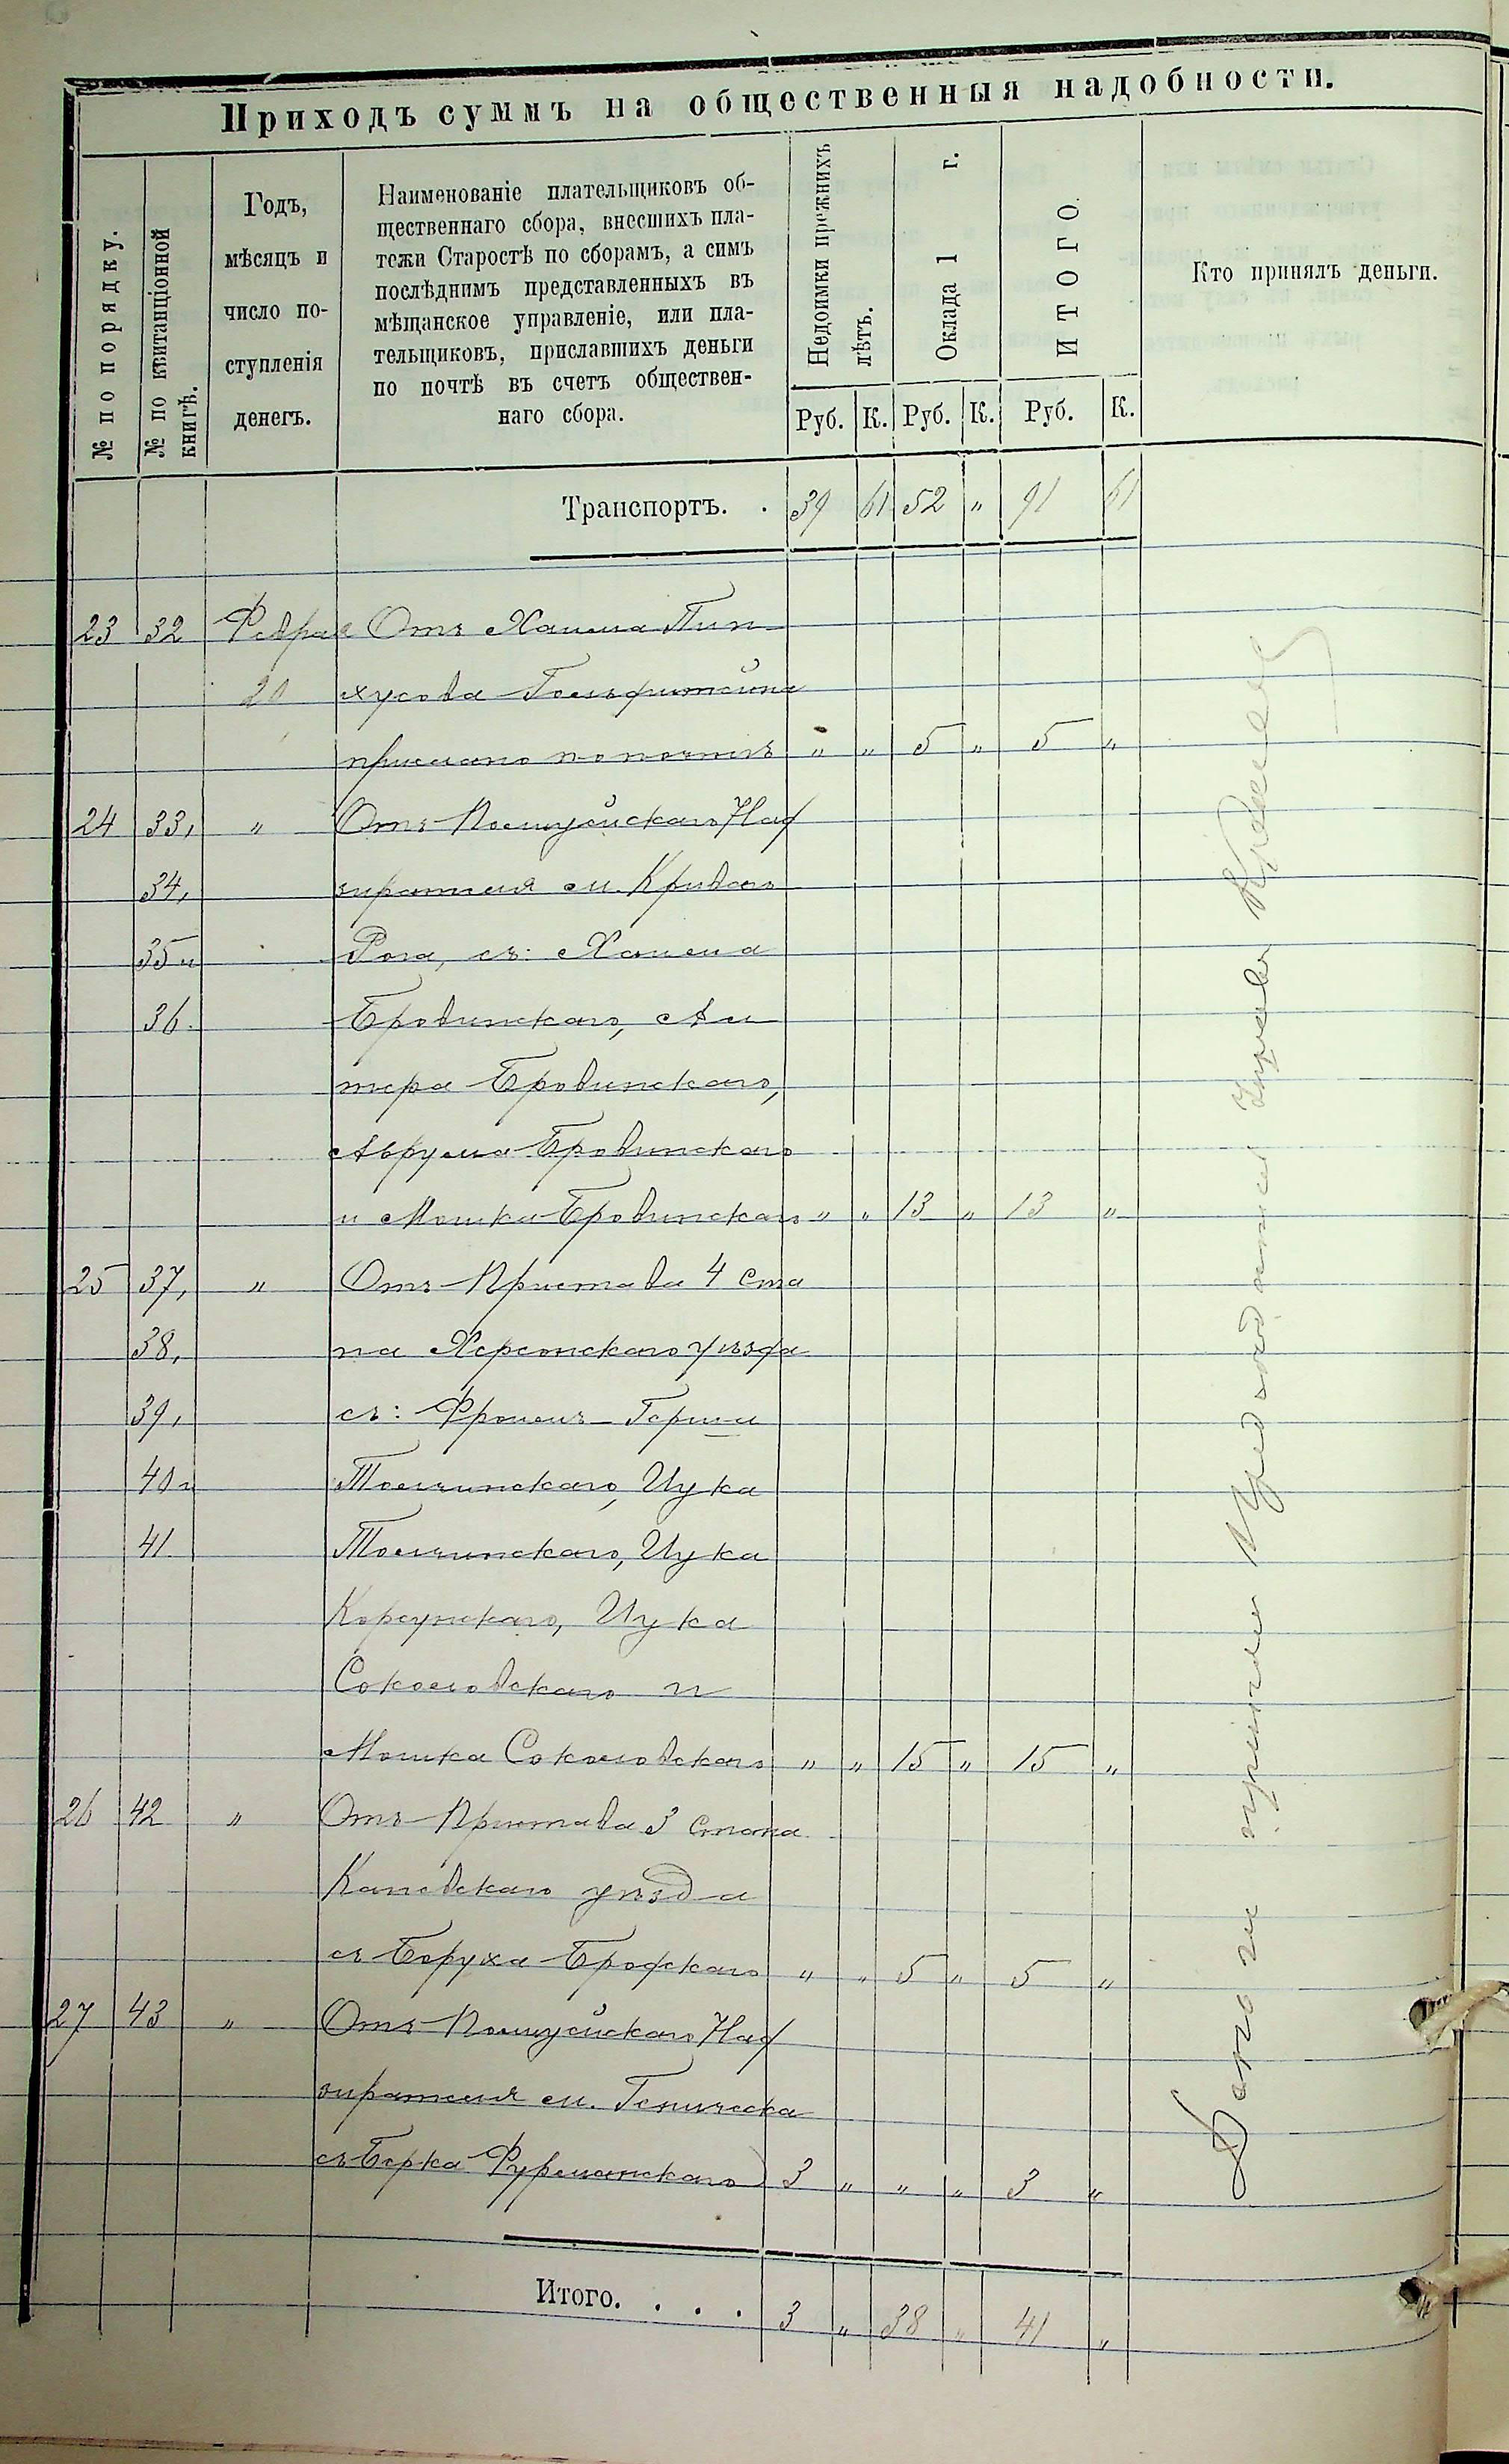 Приходъ суммъ на общественныя надобности.
№ по порядку.
№ по квитанціонной книгѣ.
Годъ,
мѣсяцъ и
число по-
ступленія
денегъ.
Наименованіе плательщиковъ об-
щественнаго сбора, внесшихъ пла-
тежи Старостѣ по сборамъ, а симъ
послѣднимъ представленныхъ въ
мѣщанское управленіе, или пла-
тельщиковъ, приславшихъ деньги
по почтѣ въ счетъ обществен-
наго сбора.
Недоимки прежнихъ лѣтъ.
Оклада 1 г.
ИТОГО.
Кто принялъ деньги.
Руб. К. Руб. К. Руб. К.
Транспортъ. . 39 61 52 „ 91 61
23 32 Февраля Отъ Хаима Пин
20 хусова Гольдштейна
прислано по почтѣ „ „ 5 „ 5 „
24 33, „ Отъ Полицейскаго Над
34, зирателя м. Кривого
35 и Рога, съ: Хаима
36. Бродинскаго, Ал
тера Бродинскаго,
Аврума Бродинскаго
и Мошка Бродинскаго „ „ 13 „ 13 „
25 37, „ Отъ Пристава 4 ста
38, на Херсонскаго уѣзда
39, съ: Фроимъ-Герши
40 и Толчинскаго, Ицка
41 Толчинскаго, Ицка
Корсунскаго, Ицка
Соколовскаго и
Мошка Соколовскаго „ „ 15 „ 15 „
26 42 „ Отъ Пристава 3 стана
Каневскаго уѣзда
съ Боруха Бродскаго „ „ 5 „ 5 „
27 43 „ Отъ Полицейскаго Над
зирателя м. Геническа
съ Берка Фурманскаго 3 „ „ „ 3 „
Итого. . . . 3 „ 38 „ 41 „
Деньги принялъ Предсѣдатель Управы